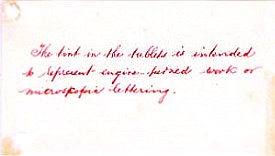 The tint in the tablets is intended
to represent engine-turned work or
microskopic lettering.